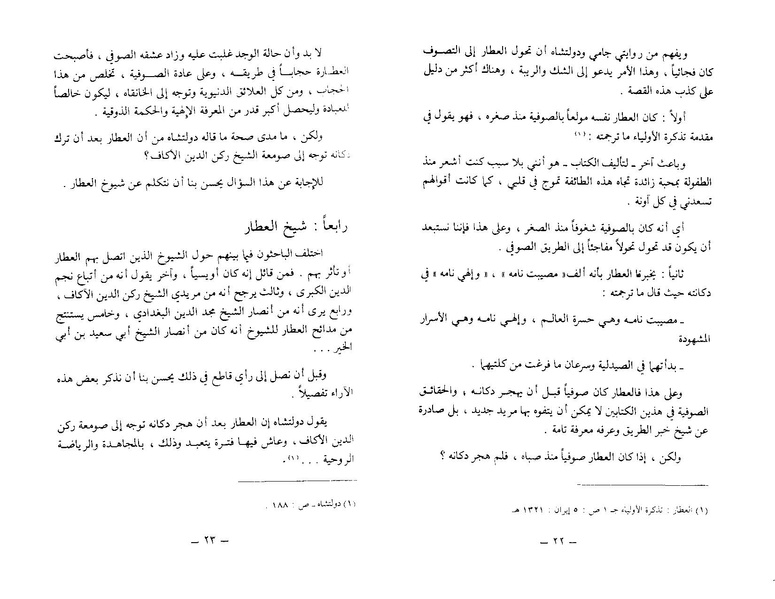 ويفهم من روايتي جامي ودولتشاه أن تحول العطار إلى التصوف
كان فجائياً ، وهذا الأمر يدعو إلى الشك والريبة ، وهناك أكثر من دليل
على كذب هذه القصة .
أولاً : كان العطار نفسه مولعاً بالصوفية منذ صغره ، فهو يقول في
مقدمة تذكرة الأولياء ما ترجمته : (١)
وباعث آخر ـ لتأليف الكتاب ـ هو أنني بلا سبب كنت أشعر منذ
الطفولة بمحبة زائدة تجاه هذه الطائفة تموج في قلبي ، كما كانت أقوالهم
تسعدني في كل آونة .
أي أنه كان بالصوفية شغوفاً منذ الصغر ، وعلى هذا فإننا نستبعد
أن يكون قد تحول تحولاً مفاجئاً إلى الطريق الصوفي .
ثانياً : يخبرنا العطار بأنه ألف « مصيبت نامه » ، « وإلهي نامه » في
دكانته حيث قال ما ترجمته :
ـ مصيبت نامه وهي حسرة العالم ، وإلهي نامه وهي الأسرار
المشهودة
ـ بدأتهما في الصيدلية وسرعان ما فرغت من كلتيهما .
وعلى هذا فالعطار كان صوفياً قبل أن يهجر دكانه ، والحقائق
الصوفية في هذين الكتابين لا يمكن أن يتفوه بها مريد جديد ، بل صادرة
عن شيخ خبر الطريق وعرفه معرفة تامة .
ولكن ، إذا كان العطار صوفياً منذ صباه ، فلم هجر دكانه ؟
(١) العطار : تذكرة الأولياء جـ ١ ص : ٥ إيران : ١٣٢١ هـ
ـ ٢٢ ـ
لا بد وأن حالة الوجد غلبت عليه وزاد عشقه الصوفي ، فأصبحت
العطارة حجاباً في طريقه ، وعلى عادة الصوفية ، تخلص من هذا
الحجاب ، ومن كل العلائق الدنيوية وتوجه إلى الخانقاه ، ليكون خالصاً
للعبادة وليحصل أكبر قدر من المعرفة الإلهية والحكمة الذوقية .
ولكن ، ما مدى صحة ما قاله دولتشاه من أن العطار بعد أن ترك
دكانه توجه إلى صومعة الشيخ ركن الدين الأكاف؟
للإجابة عن هذا السؤال يحسن بنا أن نتكلم عن شيوخ العطار .
رابعاً : شيخ العطار
اختلف الباحثون فيما بينهم حول الشيوخ الذين اتصل بهم العطار
أو تأثر بهم . فمن قائل إنه كان أويسياً ، وآخر يقول أنه من أتباع نجم
الدين الكبرى ، وثالث يرجح أنه من مريدي الشيخ ركن الدين الأكاف ،
ورابع يرى أنه من أنصار الشيخ مجد الدين البغدادي ، وخامس يستنتج
من مدائح العطار للشيوخ أنه كان من أنصار الشيخ أبي سعيد بن أبي
الخير . . .
وقبل أن نصل إلى رأي قاطع في ذلك يحسن بنا أن نذكر بعض هذه
الآراء تفصيلاً .
يقول دولتشاه إن العطار بعد أن هجر دكانه توجه إلى صومعة ركن
الدين الأكاف ، وعاش فيها فترة يتعبد وذلك ، بالمجاهدة والرياضة
الروحية . . . (١) .
(١) دولتشاه ـ ص : ١٨٨ .
ـ ٢٣ ـ